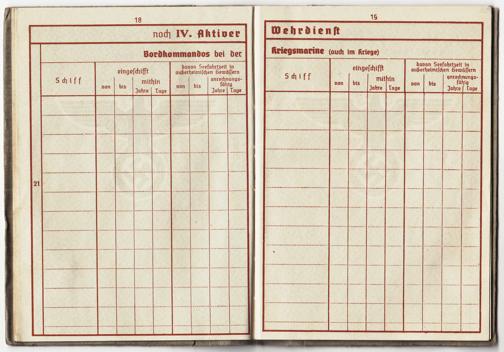 18
noch IV. Aktiver
Bordkommandos bei der
Schiff
eingeschifft
davon Seefahrtzeit in
außerheimischen Gewässern
von
bis
mithin
Jahre
Tage
von
bis
anrechnungs-
fähig
Jahre
Tage
21
19
Wehrdienst
Kriegsmarine (auch im Kriege)
Schiff
eingeschifft
davon Seefahrtzeit in
außerheimischen Gewässern
von
bis
mithin
Jahre
Tage
von
bis
anrechnungs-
fähig
Jahre
Tage